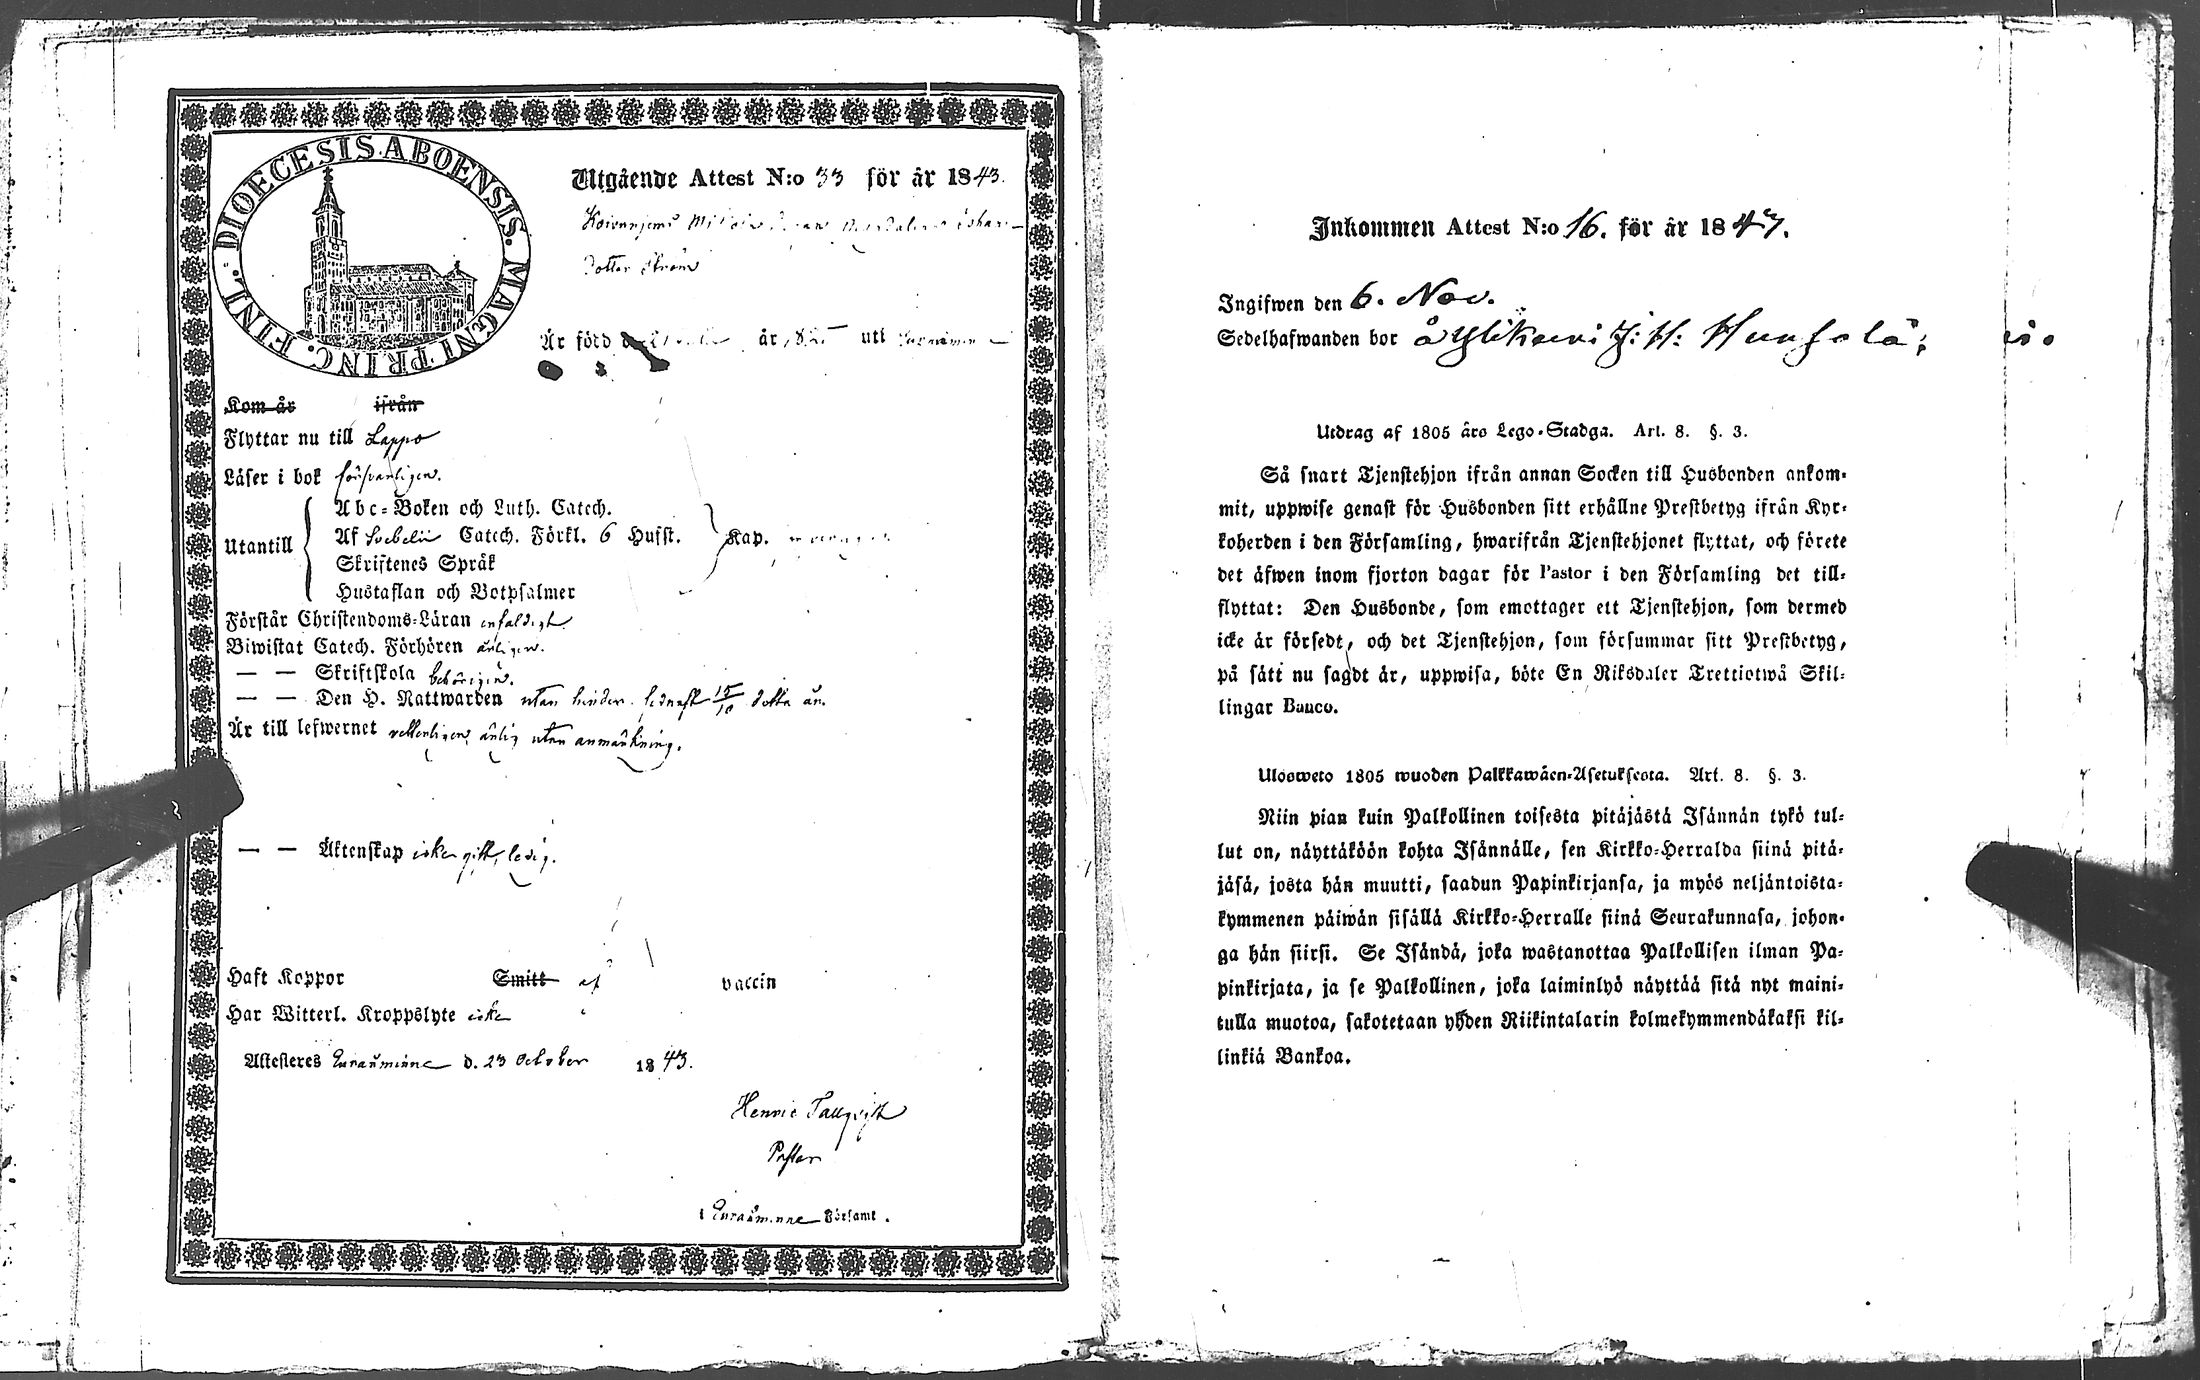 DIOECESIS ABOENSIS. MAGNI PRINC. FINL.
Utgående Attest N:o 33 för år 1843.
dotter Ström
Är född år uti
Kom år ifrån
Flyttar nu till Lappo
Läser i bok försvarligen.
Utantill
Abc-Boken och Luth. Catech.
Af Svebelii Catech. Förkl. 6 Hufst.
Skriftenes Språk
Hustaflan och Botpsalmer
Kap.
Förstår Christendoms-Läran enfaldigt.
Biwistat Catech. Förhören årligen.
— — Skriftskola behörigen.
— — Den H. Nattwarden utan hinder. sednast 15/10 detta år.
Är till lefwernet veterligen ärlig utan anmärkning.
— — Äktenskap icke gift, ledig.
Haft Koppor Smitt af vaccin
Har Witterl. Kroppslyte icke
Attesteres Euraåminne d. 23 October 1843.
Henric Tallqvist
Pastor
i Euraåminne Församl.
Inkommen Attest N:o 16. för år 1847.
Ingifwen den 6. Nov.
Sedelhafwanden bor å
Utdrag af 1805 års Lego-Stadga. Art. 8. §. 3.
Så snart Tjenstehjon ifrån annan Socken till Husbonden ankom-
mit, uppwise genast för Husbonden sitt erhållne Prestbetyg ifrån Kyr-
koherden i den Församling, hwarifrån Tjenstehjonet flyttat, och förete
det äfwen inom fjorton dagar för Pastor i den Församling det till-
flyttat: Den Husbonde, som emottager ett Tjenstehjon, som dermed
icke är försedt, och det Tjenstehjon, som försummar sitt Prestbetyg,
på sätt nu sagdt är, uppwisa, böte En Riksdaler Trettiotwå Skil-
lingar Banco.
Ulosweto 1805 wuoden Palkkawäen-Asetuksesta. Art. 8. §. 3.
Niin pian kuin Palkollinen toisesta pitäjästä Isännän tykö tul-
lut on, näyttäköön kohta Isännälle, sen Kirkko-Herralda siinä pitä-
jäsä, josta hän muutti, saadun Papinkirjansa, ja myös neljäntoista-
kymmenen päiwän sisällä Kirkko-Herralle siinä Seurakunnasa, johon-
ga hän siirsi. Se Isändä, joka wastanottaa Palkollisen ilman Pa-
pinkirjata, ja se Palkollinen, joka laiminlyö näyttää sitä nyt maini-
tulla muotoa, sakotetaan yhden Riikintalarin kolmekymmendäkaksi kil-
linkiä Bankoa.